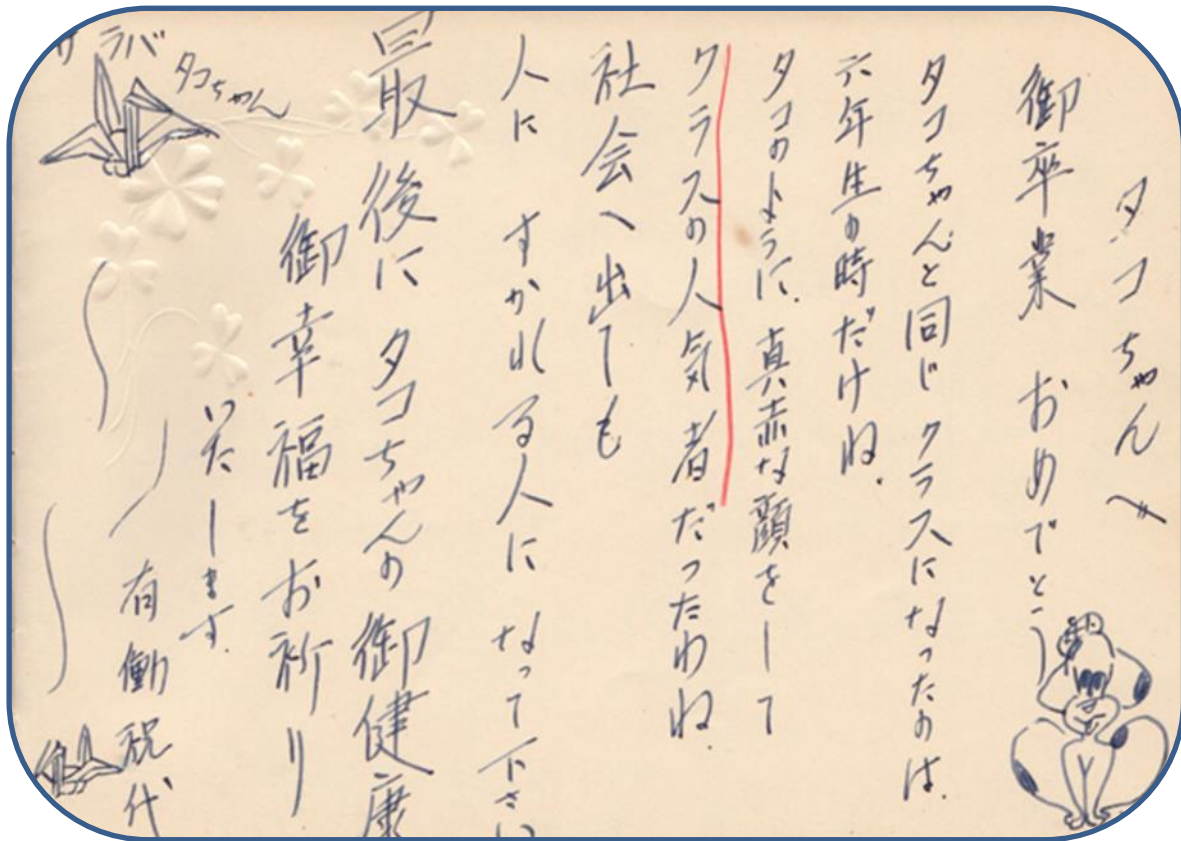 タコちゃんへ
御卒業 おめでとう
タコちゃんと同じクラスになったのは、
六年生の時だけね。
タコのように、真赤な顔をして
クラスの人気者だったわね。
社会へ出ても
人に すかれる人に なって下さい
最後に タコちゃんの 御健康
御幸福をお祈り
いたします。
有働祝代
サラバ
タコちゃん